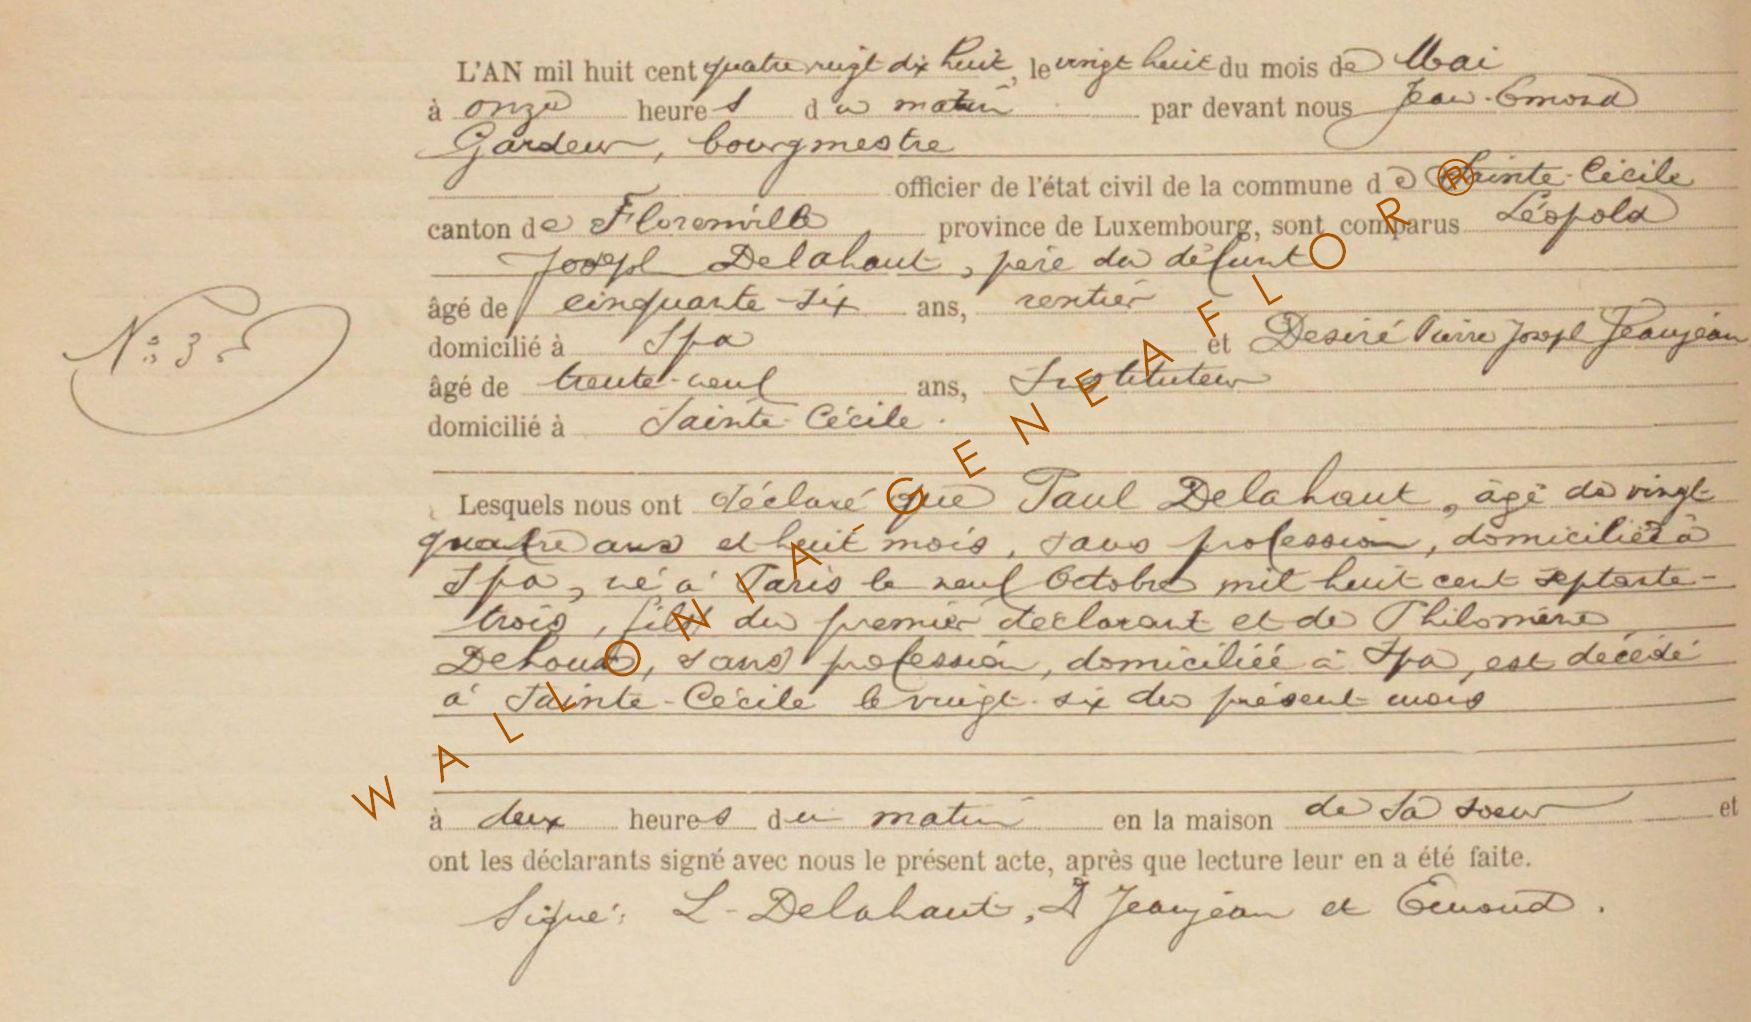 L'AN mil huit cent quatre vingt dix huit, le vingt huit du mois de Mai
à onze heures du matin par devant nous Jean Emond
Gardeur, bourgmestre
officier de l'état civil de la commune de Sainte-Cécile
canton de Florenville, province de Luxembourg, sont comparus Léopold
Joseph Delahaut, père du défunt
âgé de cinquante-six ans, rentier
domicilié à Spa et Desiré Pierre Joseph Jeanjean
N° 3
âgé de trente-neuf ans, Instituteur
domicilié à Sainte-Cécile.
Lesquels nous ont déclaré que Paul Delahaut, âgé de vingt
quatre ans et huit mois, sans profession, domicilié à
Spa, né à Paris le neuf Octobre mil huit cent septante-
trois, fils du premier déclarant et de Philomène
Dehoux, sans profession, domiciliée à Spa, est décédé
à Sainte-Cécile le vingt-six du présent mois
à deux heures du matin en la maison de sa soeur et
ont les déclarants signé avec nous le présent acte, après que lecture leur en a été faite.
Signé: L. Delahaut, D Jeanjean et Emond.
WALLONIA-GENEAFLOR®